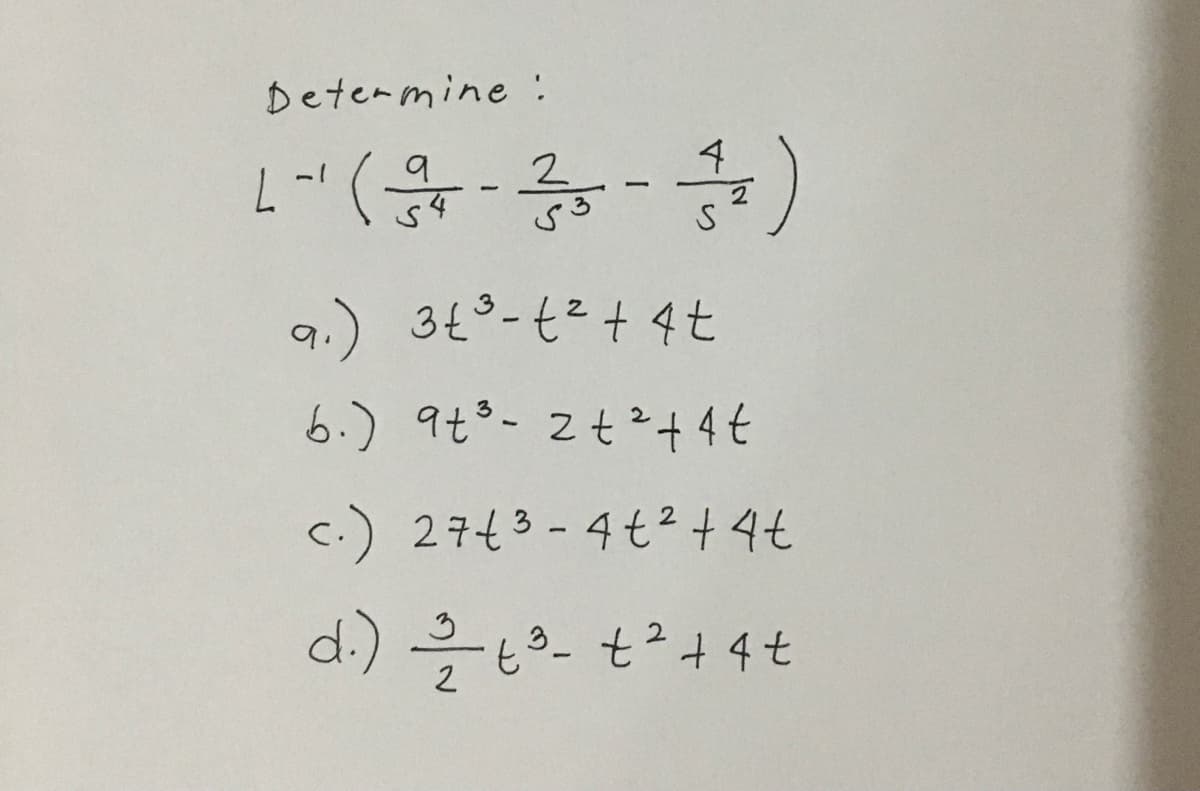 Determine :
L⁻¹ ( 9/s⁴ - 2/s³ - 4/s² )
a.) 3t³ - t² + 4t
b.) 9t³ - 2t² + 4t
c.) 27t³ - 4t² + 4t
d.) 3/2 t³ - t² + 4t